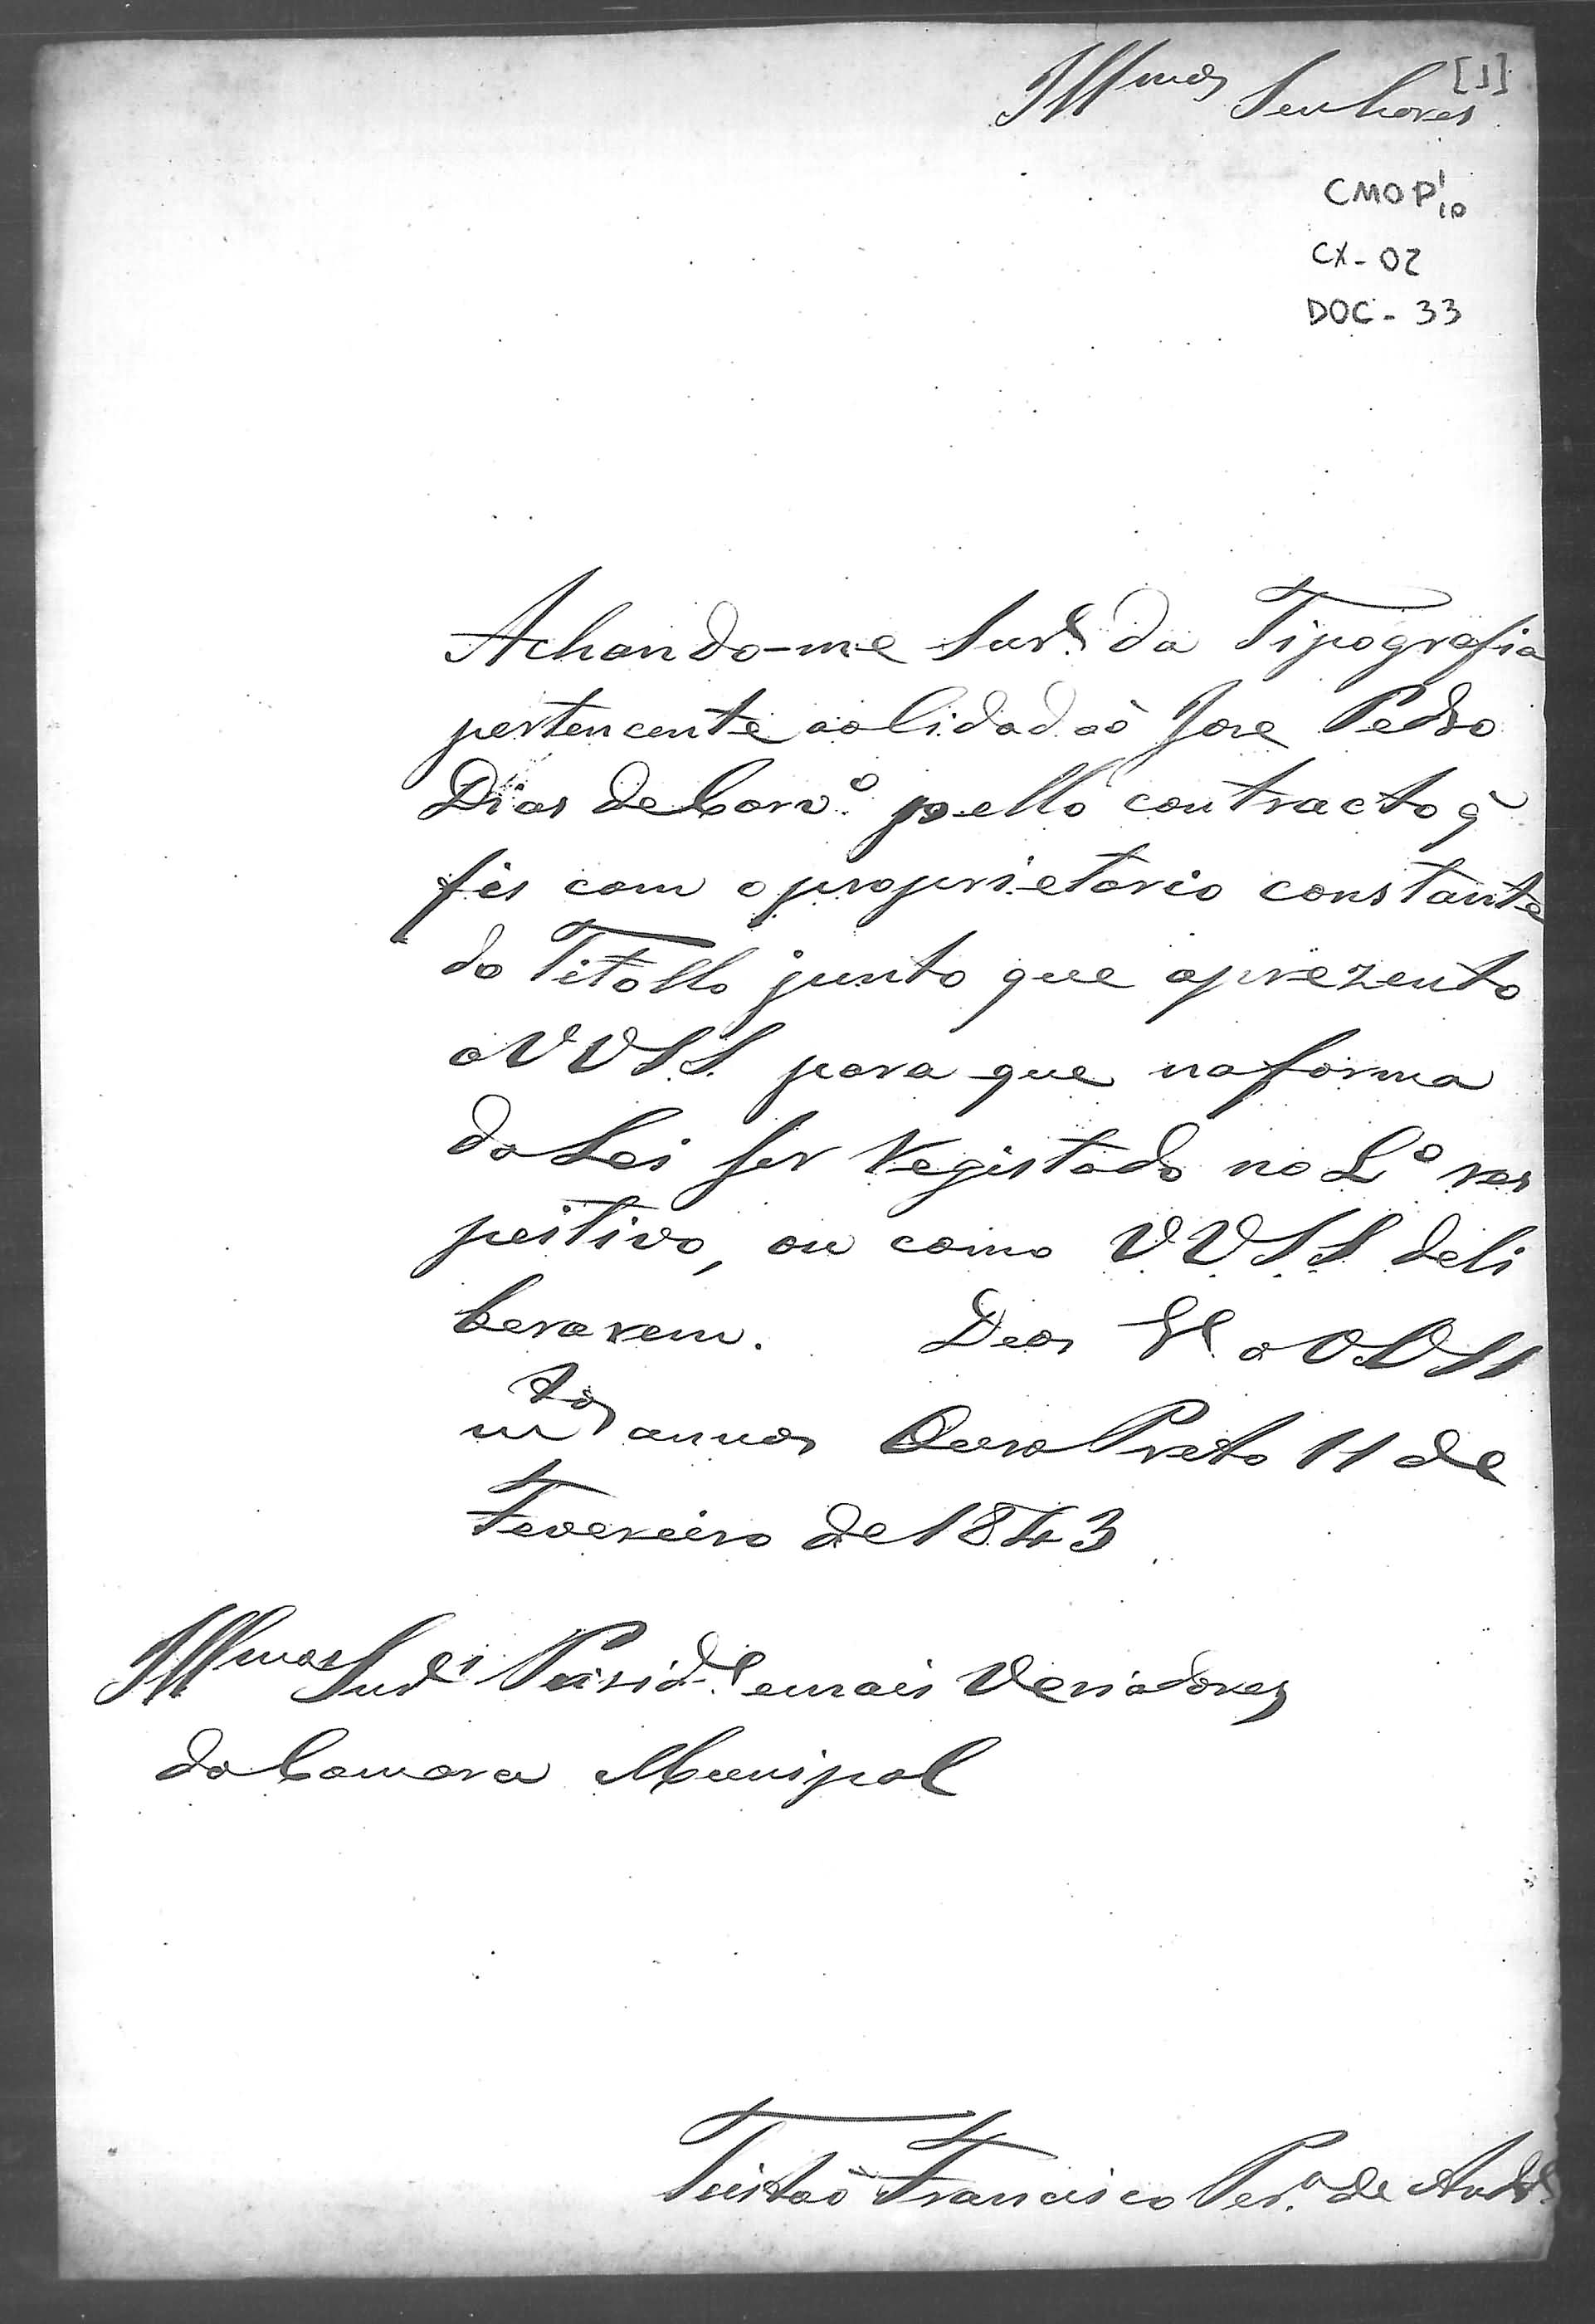 [1]
Illmos Senhores
CMOP 1/10
CX - 02
DOC - 33
Achando-me da Tipografia
pertencente aoCidadaõ Jose Pedro
Dias deCarvo. pello contracto q̃
fis com oproprietario constante
do Titollo junto que aprezento
aVVSS. para que naforma
daLei ser Registado no Lo res
peitivo, ou como VVSS deli
berarem. Deos Ge. aVVSS
mtos annos OuroPreto 11 de
Fevereiro de 1843
Illmos Snrs Preside. emais Veriadores
daCamara Municipal
Tristaõ Francisco Pera. de Andre.